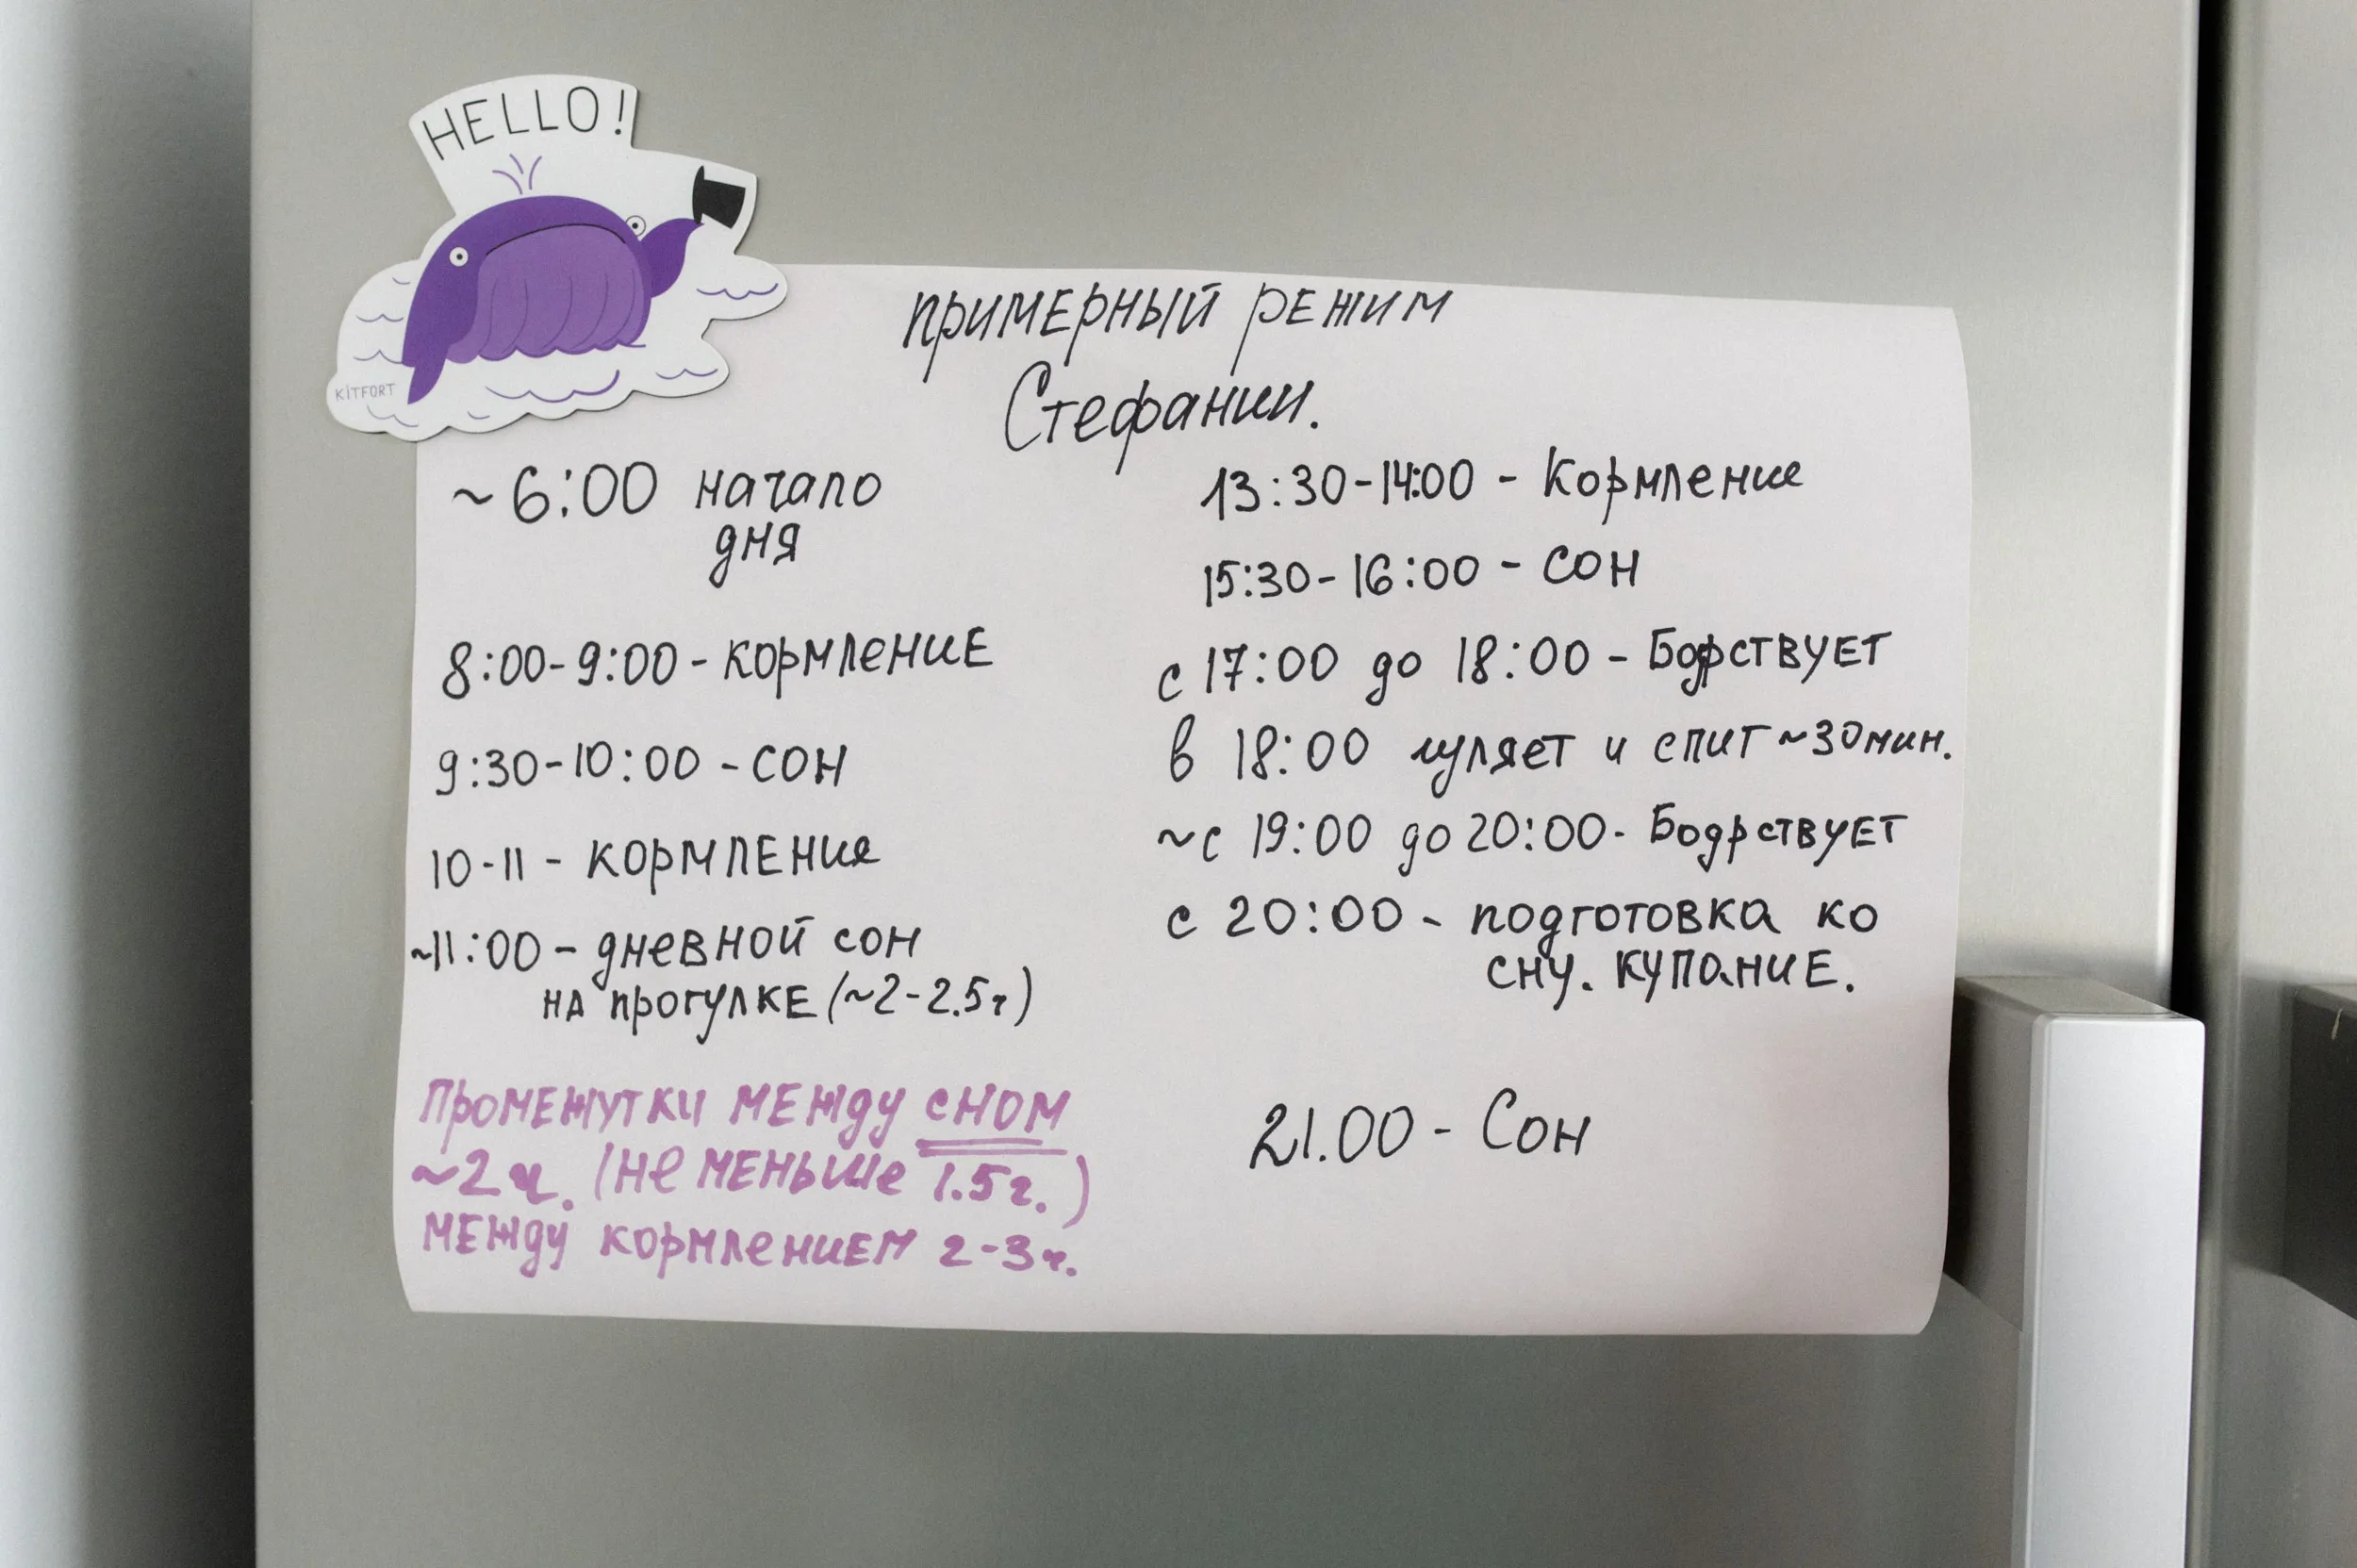 HELLO!
KITFORT
примерный режим
Стефании.
~6:00 начало
дня
8:00-9:00-кормление
9:30-10:00-сон
10-11 - кормления
~11:00 - дневной сон
на прогулке (~2-2.5ч)
Промежутки между сном
~2 ч. (не меньше 1.5ч.)
между кормлением 2-3ч.
13:30-14:00 - Кормление
15:30-16:00 - сон
с 17:00 до 18:00 - Бодрствует
в 18:00 гуляет и спит ~30мин.
~с 19:00 до 20:00- Бодрствует
с 20:00 - подготовка ко
сну. купание.
21.00 - Сон